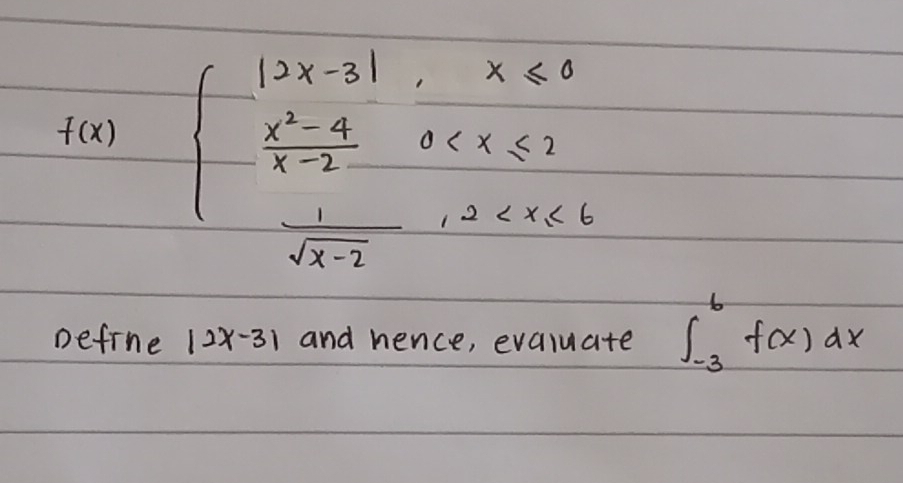 |2x-3| , x ≤ 0
f(x) { (x²-4)/(x-2) 0 < x ≤ 2
1/√(x-2) , 2 < x ≤ 6
Define |2x-3| and hence, evaluate ∫₋₃⁶ f(x) dx